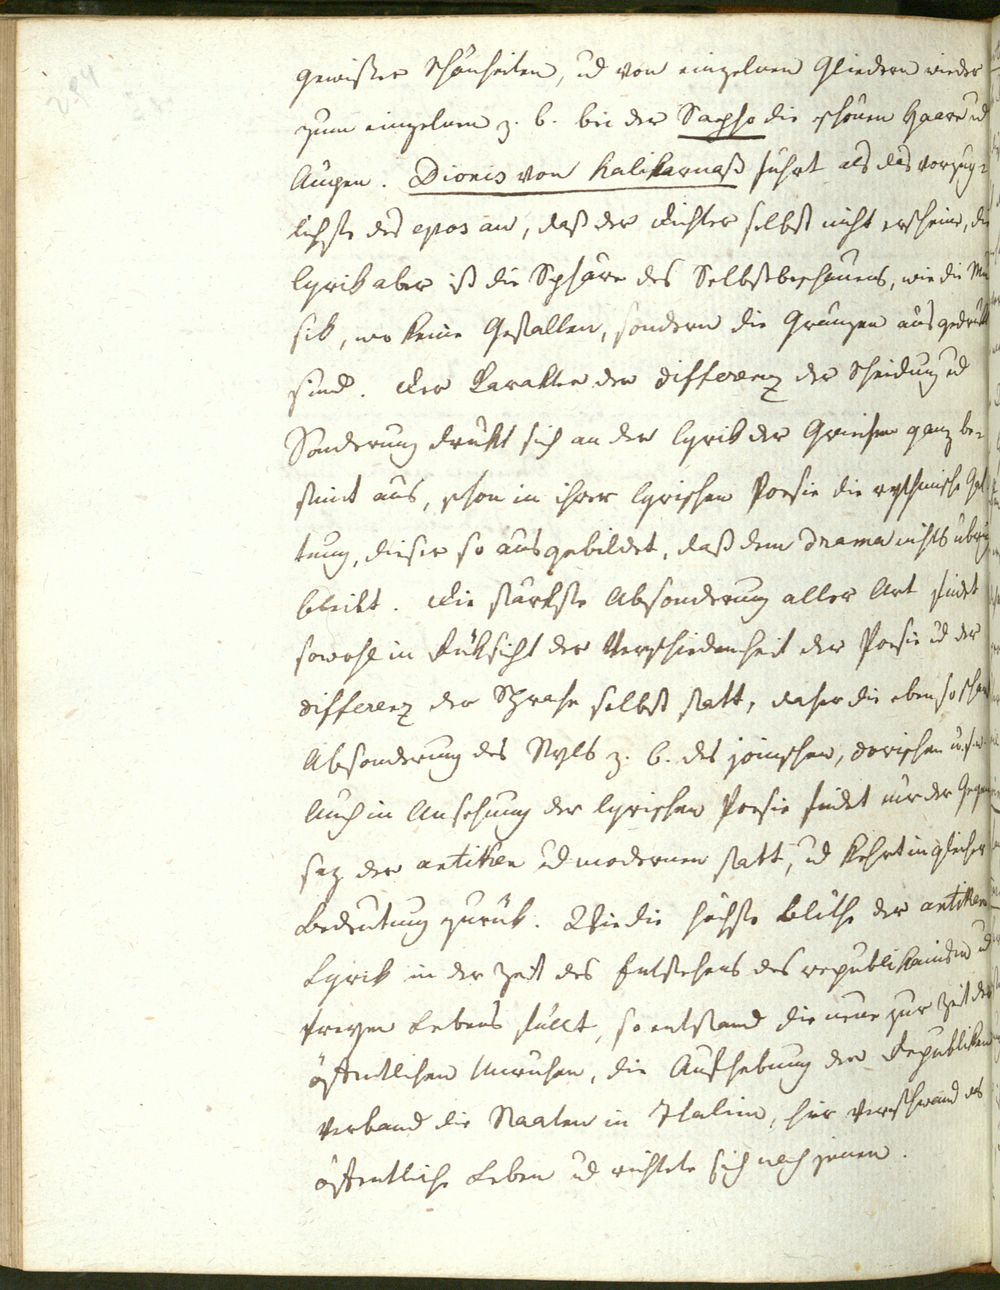 gewißer Schönheiten, ud von einzelnen Gliedern wieder
zum einzelnen z. b. bei der Sapho die schönen Haare ud
Augen. Dionis von Halikarnaß führt als das vorzüg-
lichste des epos an, daß der Dichter selbst nicht erscheine, die
lyrik aber ist die Sphäre des Selbstbeschauens, wie die Mu
sik, wo keine Gestalten, sondern die Gränzen ausgedrükt
sind. Der Karakter der differenz der Scheidung ud
Sonderung drükt sich an der lyrik der Griechen ganz be-
stimt aus, schon in ihrer lyrischen Poesie die rythmische Gat
tung, dieser so ausgebildet, daß dem drama nichts übrig
bleibt. Die stärkste Absonderung aller Art findet
sowohl in Rüksicht der Verschiedenheit der Poesie ud der
differenz der Sprache selbst statt, daher die eben so
Absonderung des Styls z. b. des jonischen, dorischen u. s. w.
Auch in Ansehung der lyrischen Poesie findet nur der Gegen
saz der antiken ud modernen statt, ud kehrt in gleicher
Bedeutung zurük. Wie die höchste Blüthe der antiken
Lyrik in der Zeit des Entstehens des republikanischen ud
freyen Lebens fällt, so entstand die neue zur Zeit der
öffentlichen Unruhen, die Aufhebung der Republiken
verband die Staaten in Italien, hier verschwand das
öffentliche Leben ud richtete sich nach jenen.